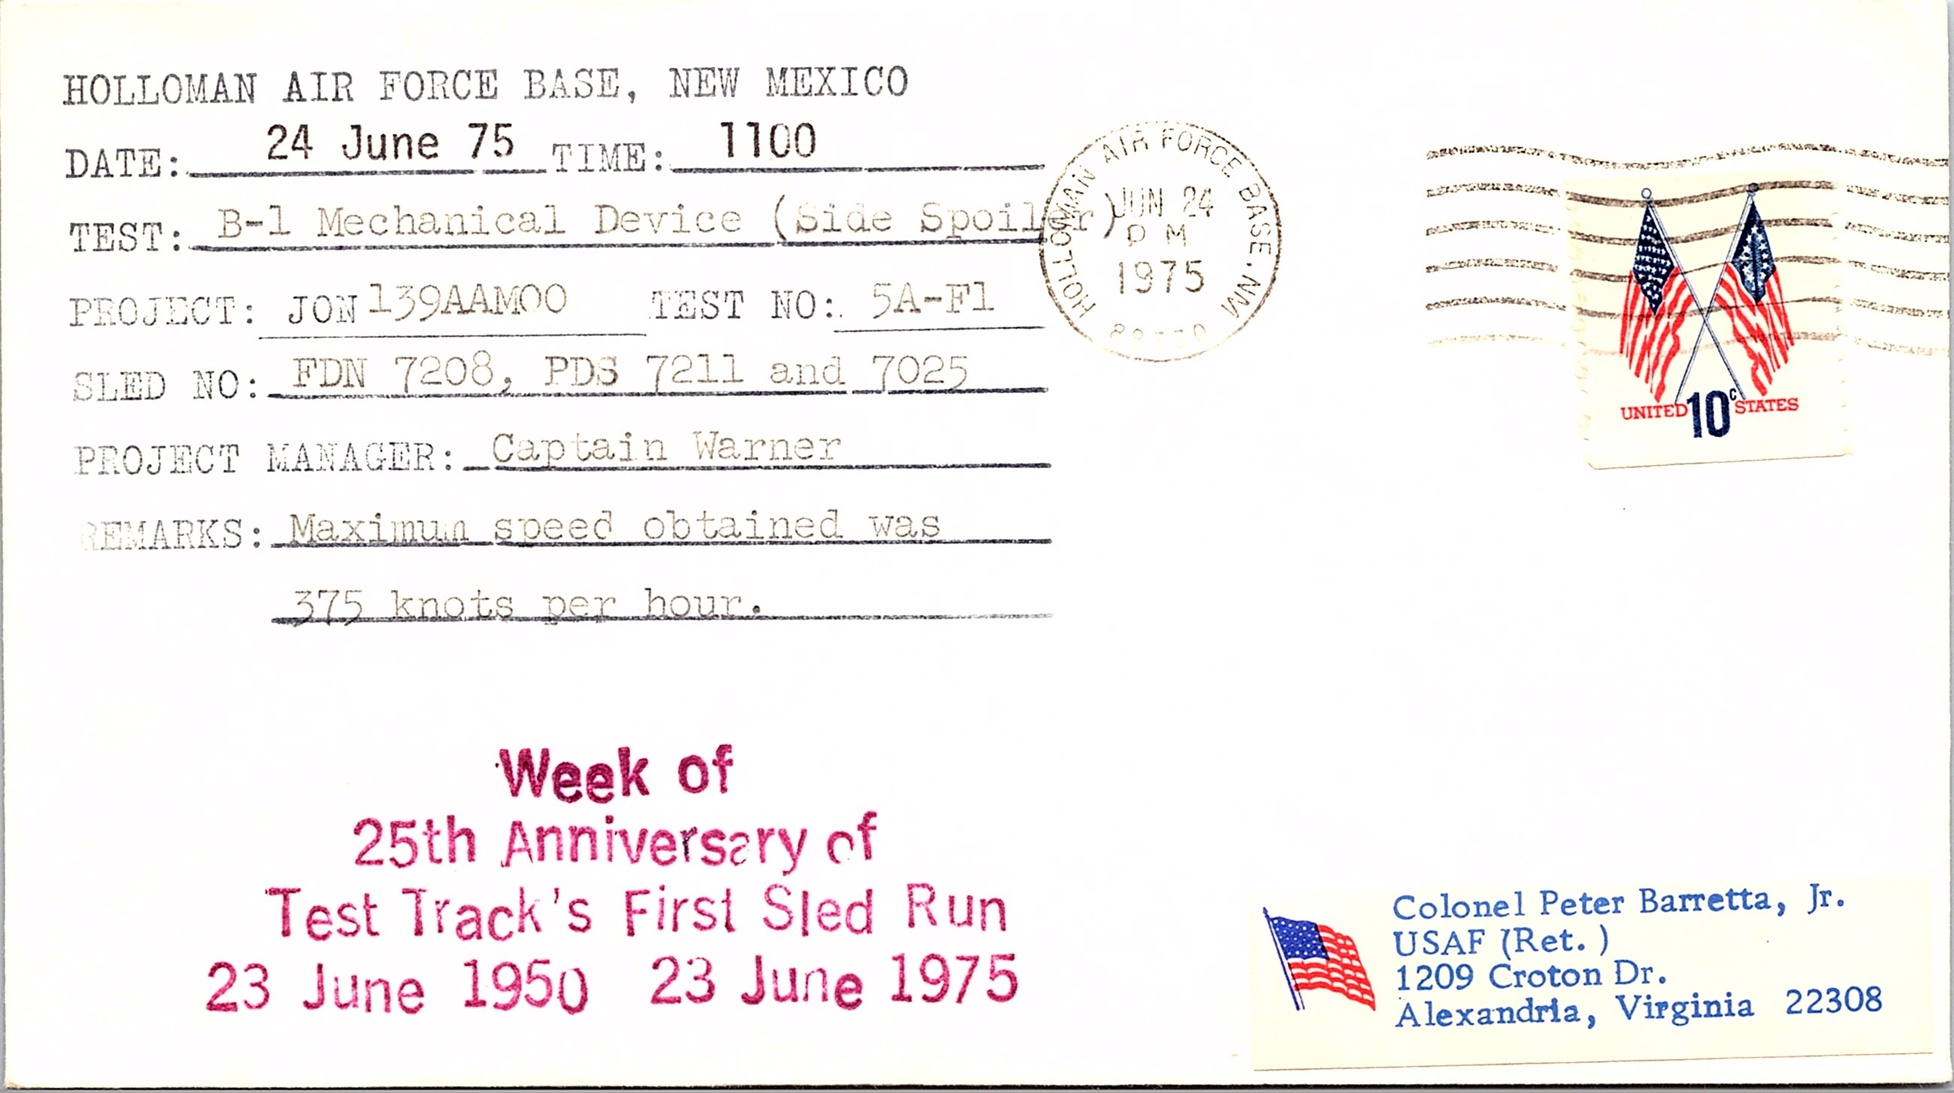 HOLLOMAN AIR FORCE BASE, NEW MEXICO
DATE: 24 June 75 TIME: 1100
TEST: B-1 Mechanical Device (Side Spoiler)
PROJECT: JON 139AAM00 TEST NO: 5A-F1
SLED NO: FDN 7208, PDS 7211 and 7025
PROJECT MANAGER: Captain Warner
REMARKS: Maximum speed obtained was
375 knots per hour.
HOLLOMAN AIR FORCE BASE, NM
JUN 24
PM
1975
UNITED 10c STATES
Week of
25th Anniversary of
Test Track's First Sled Run
23 June 1950 23 June 1975
Colonel Peter Barretta, Jr.
USAF (Ret.)
1209 Croton Dr.
Alexandria, Virginia 22308